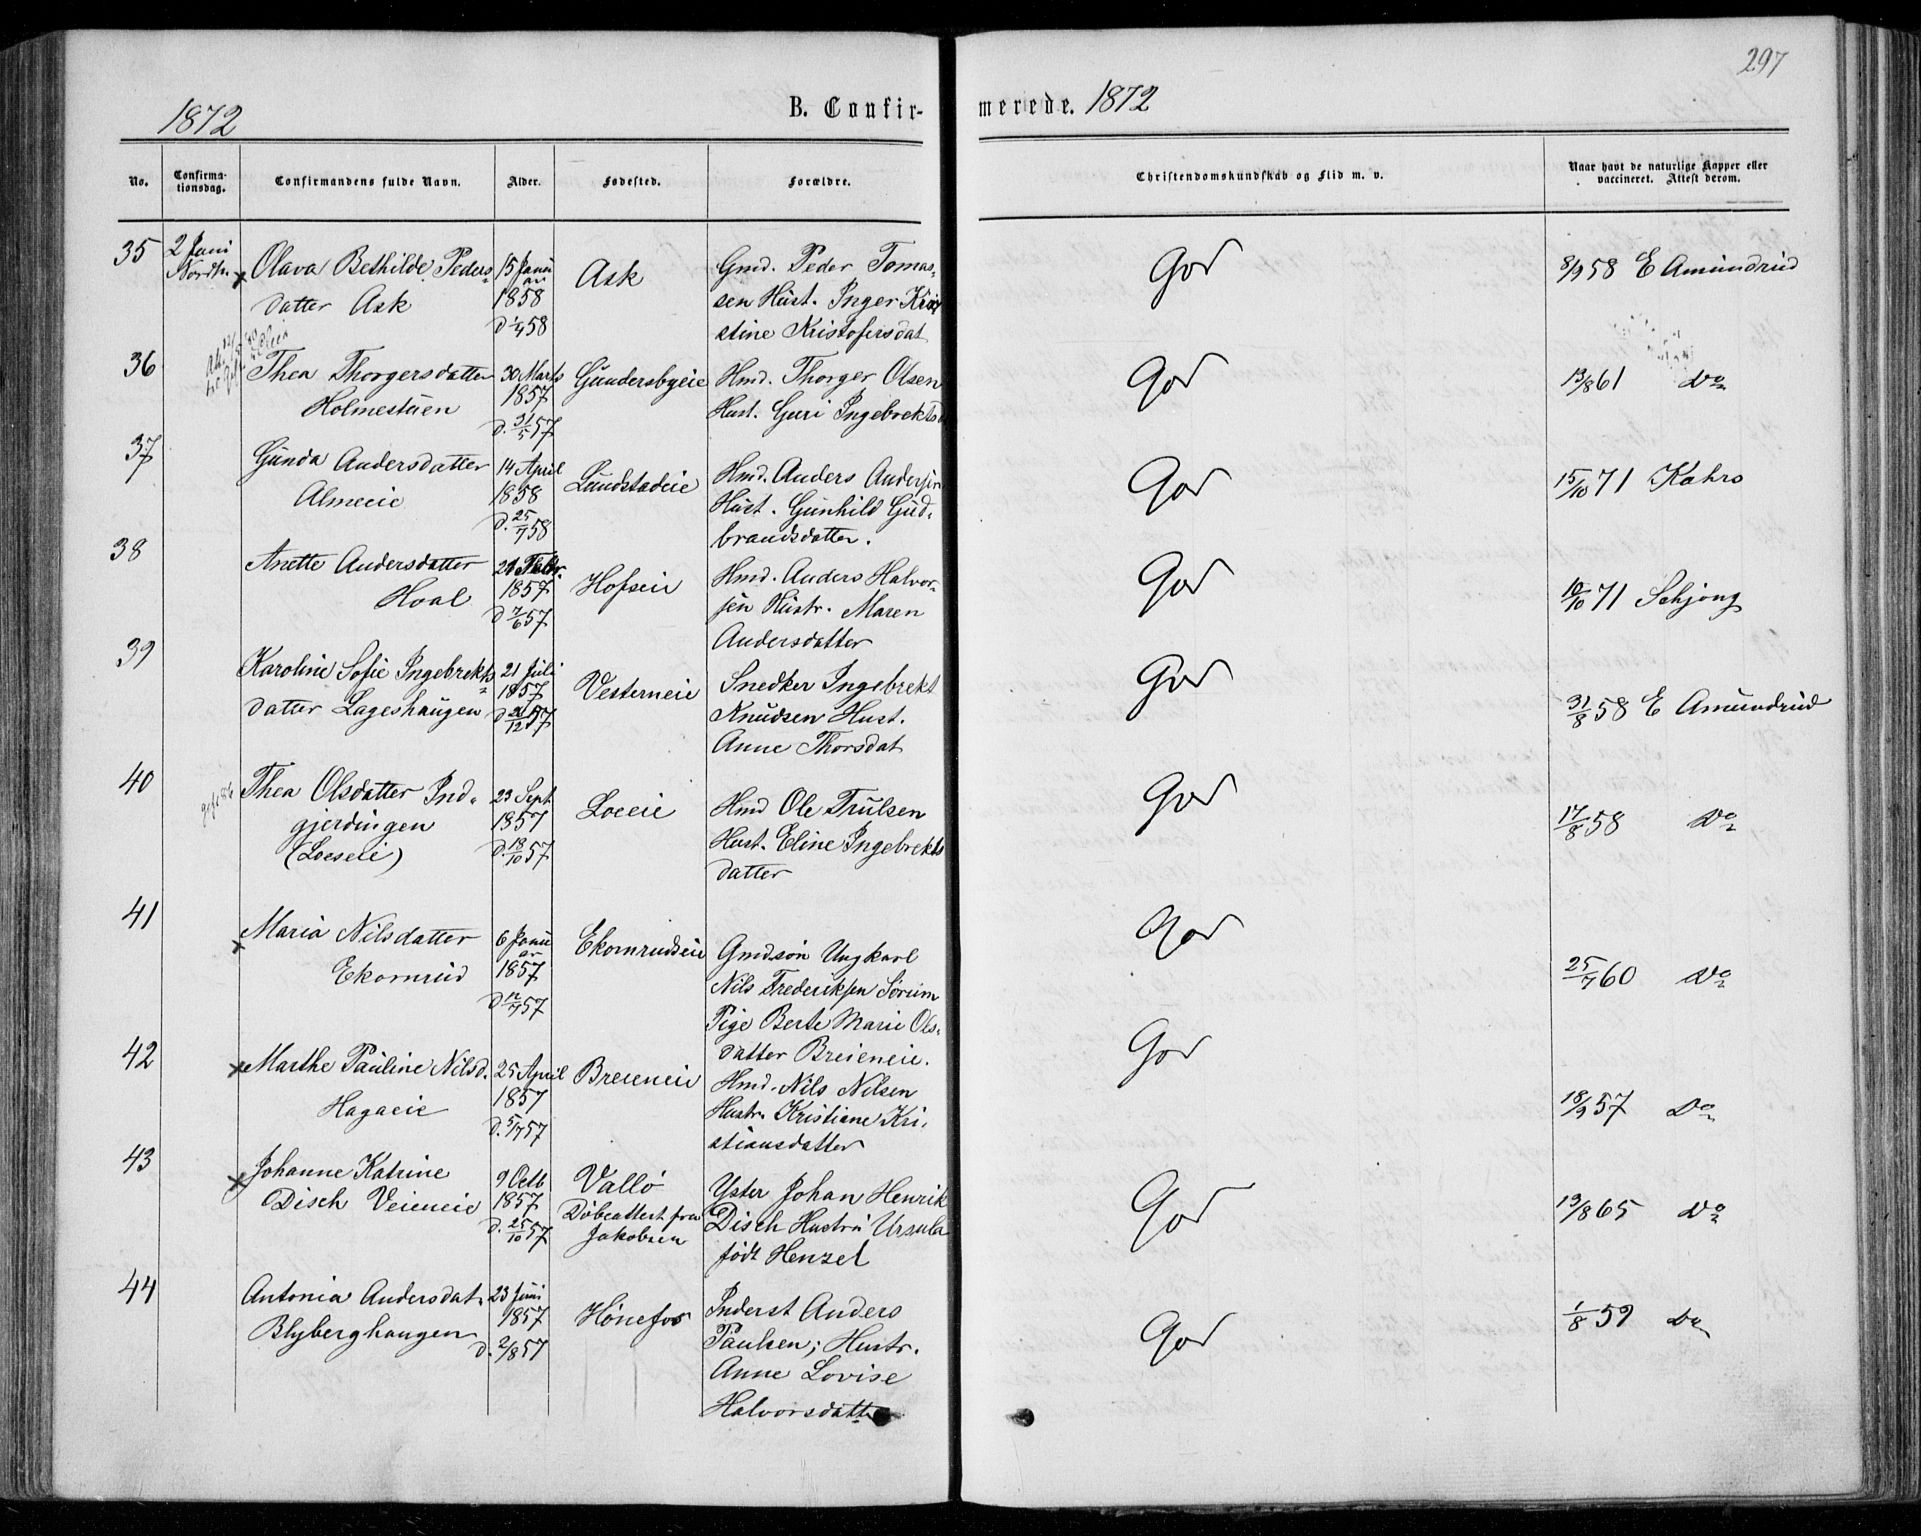 297
1872
B. Confir-
merede. 1872
No.
Confirma-
tionsdag.
Confirmandens fulde Navn.
Alder.
Fødested.
Forældre.
Christendomskundskab og Flid m. v.
Naar havt de naturlige Kopper eller
vaccineret. Attest derom.
35 2 Juni
Nordr.
x Olava Bethilde Peders-
datter Ask
15 Janu
ar
1858
d 1/4 58
Ask
Gmd. Peder Tomas-
sen Hust. Inger Kri
stine Kristofersdat
God
8/9 58 E Amundrud
36
Thea Thorgersdatter
Holmestuen
30 Marts
1857
d. 31/5 57
Gundersbyeie
Hmd. Thorger Olsen
Hust. Guri Ingebrektsd
God
13/8 61 Do
37
Gunda Andersdatter
Almeeie
14 April
1858
d. 25/7 58
Lundstadeie
Hmd. Anders Andersen
Hust. Gunhild Gud-
brandsdatter.
God
15/10 71 Kahrs
38
Anette Andersdatter
Hoal
21 Febr.
1857
d 7/6 57
Hofseie
Hmd. Anders Halvor-
sen Hustr. Maren
Andersdatter
God
10/10 71 Schjong
39
Karoline Sofie Ingebrekts-
datter Lageshaugen
21 Juli
1857
d 26/12 57
Vesterneie
Snedker Ingebrekt
Knudsen Hust.
Anne Thorsdat
God
31/8 58 E Amundrud
40
Thea Olsdatter Ind-
gjerdingen
(Loeseie)
23 Sept
1857
d. 18/10 57
Loeeie
Hmd Ole Trulsen
Hust. Eline Ingebrekts
datter
God
17/8 58 Do
41
x Maria Nilsdatter
Ekornrud
6 Janu
ar
1857
d 12/7 57
Ekornrudseie
Gmdsøn Ungkarl
Nils Frederiksen Sørum
Pige Berte Marie Ols-
datter Breieneie.
God
25/7 60 Do
42
x Marthe Pauline Nilsd.
Hagaeie
25 April
1857
d. 5/7 57
Breieneie
Hmd. Nils Nilsen
Hustr. Kristiane Kri-
stiansdatter
God
18/9 57 Do
43
x Johanne Katrine
Disch Veieneie
9 Octb
1857
d. 25/10 57
Vallø
Døbeattest fra
Jakobsen
Yster Johan Henrik
Disch Hustru Ursula
født Henzel
God
13/8 65 Do
44
Antonia Andersdat.
Blyberghaugen
23 Juni
1857
d. 2/8 57
Hønefos
Inderst Anders
Paulsen; Hustr.
Anne Lovise
Halvorsdatter
God
1/8 59 Do